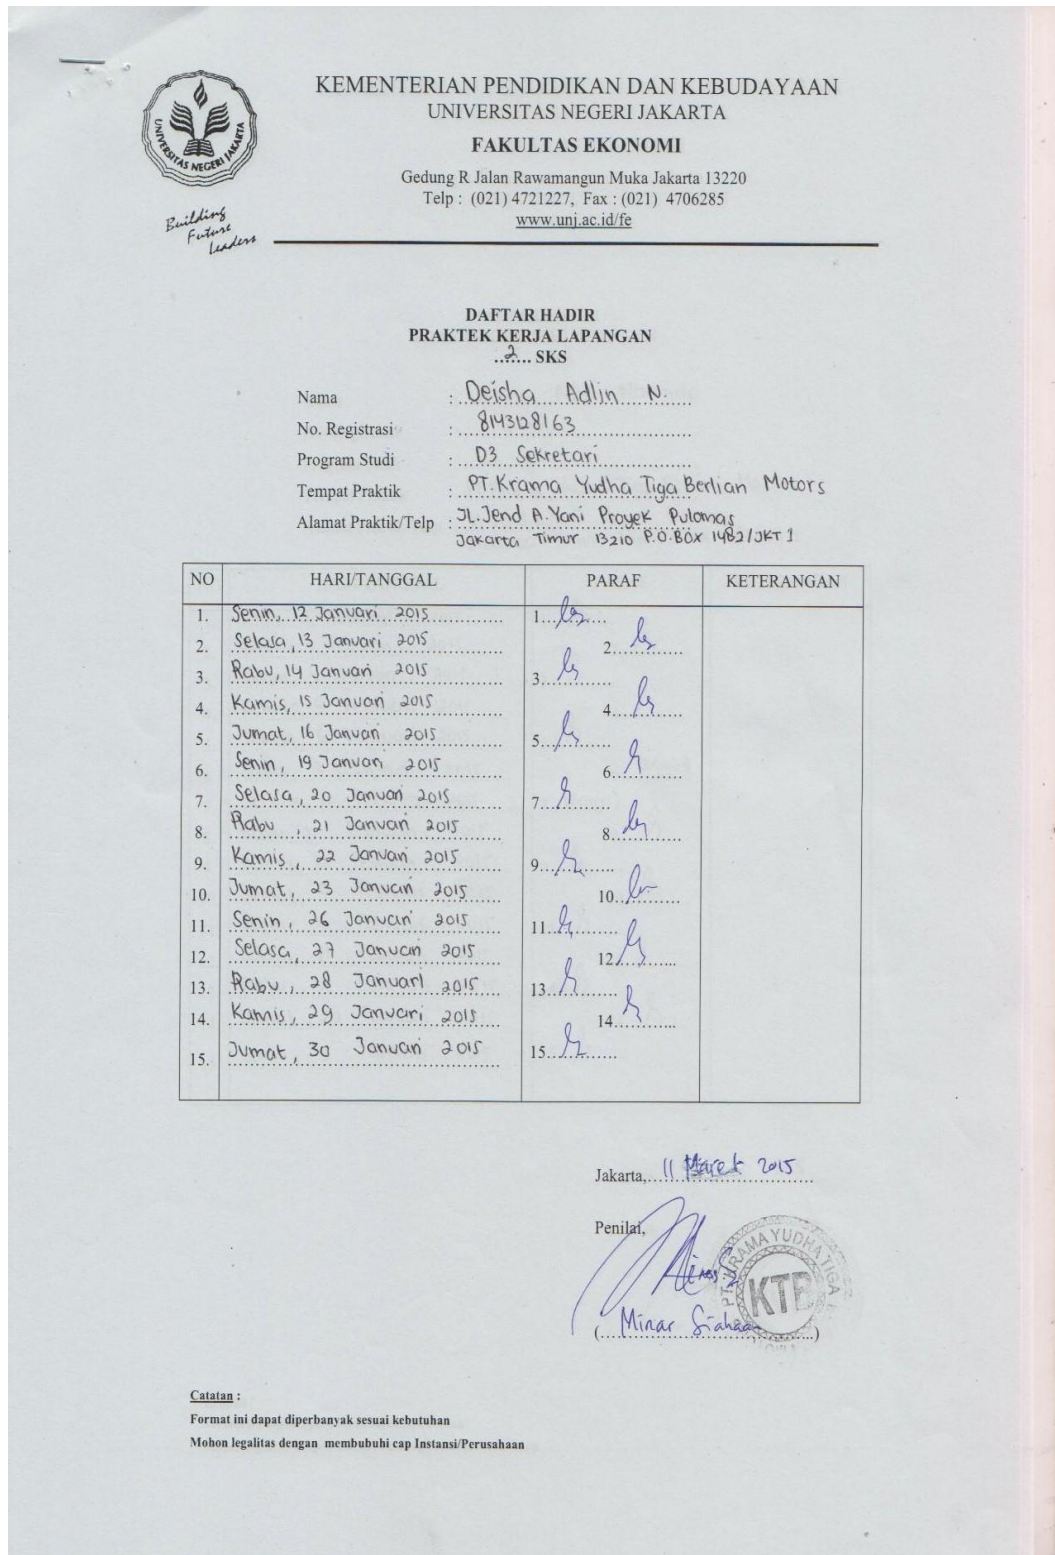 KEMENTERIAN PENDIDIKAN DAN KEBUDAYAAN
UNIVERSITAS NEGERI JAKARTA
FAKULTAS EKONOMI
Gedung R Jalan Rawamangun Muka Jakarta 13220
Telp : (021) 4721227, Fax : (021) 4706285
www.unj.ac.id/fe
UNIVERSITAS NEGERI JAKARTA
Building
Future
Leaders
DAFTAR HADIR
PRAKTEK KERJA LAPANGAN
..2.... SKS
Nama : Deisha Adlin N.
No. Registrasi : 8143128163
Program Studi : D3 Sekretari
Tempat Praktik : PT. Krama Yudha Tiga Berlian Motors
Alamat Praktik/Telp : JL. Jend A. Yani Proyek Pulomas
Jakarta Timur 13210 P.O. BOX 1482/JKT 1
NO HARI/TANGGAL PARAF KETERANGAN
1. Senin, 12 Januari 2015 1.
2. Selasa, 13 Januari 2015 2.
3. Rabu, 14 Januari 2015 3.
4. Kamis, 15 Januari 2015 4.
5. Jumat, 16 Januari 2015 5.
6. Senin, 19 Januari 2015 6.
7. Selasa, 20 Januari 2015 7.
8. Rabu, 21 Januari 2015 8.
9. Kamis, 22 Januari 2015 9.
10. Jumat, 23 Januari 2015 10.
11. Senin, 26 Januari 2015 11.
12. Selasa, 27 Januari 2015 12.
13. Rabu, 28 Januari 2015 13.
14. Kamis, 29 Januari 2015 14.
15. Jumat, 30 Januari 2015 15.
Jakarta, 11 Maret 2015
Penilai,
PT. KRAMA YUDHA TIGA
KTB
(Minar Siahaan)
Catatan :
Format ini dapat diperbanyak sesuai kebutuhan
Mohon legalitas dengan membubuhi cap Instansi/Perusahaan